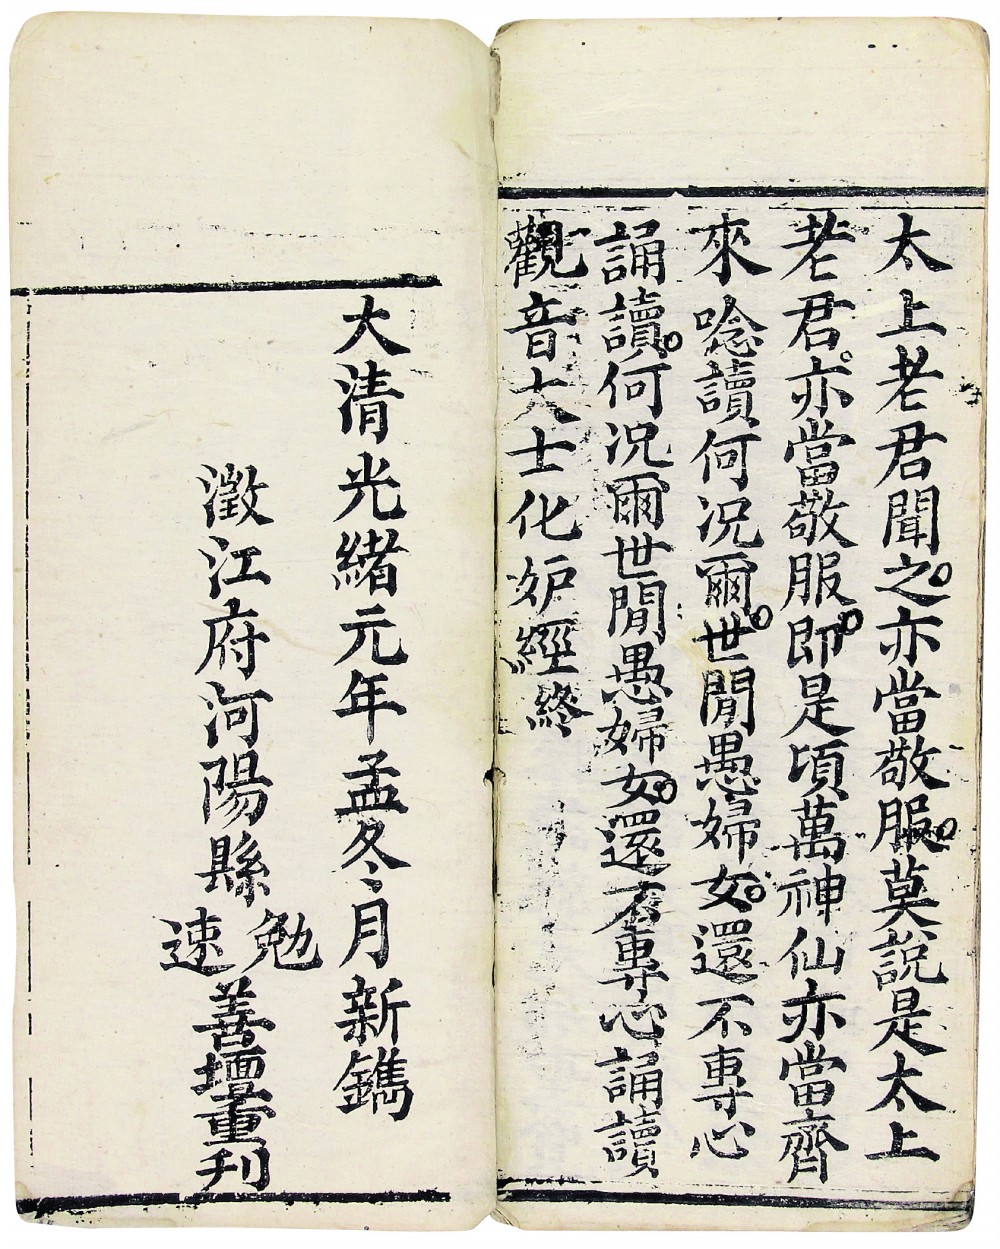 太上老君聞之亦當敬服莫說是太上
老君亦當敬服即是頃萬神仙亦當齊
來唸讀何況爾世閒愚婦女還不專心
誦讀何況爾世閒愚婦女還不專心誦讀
觀音大士化妒經終
大清光緒元年孟冬月新鐫
澂江府河陽縣勉速善壇重刊